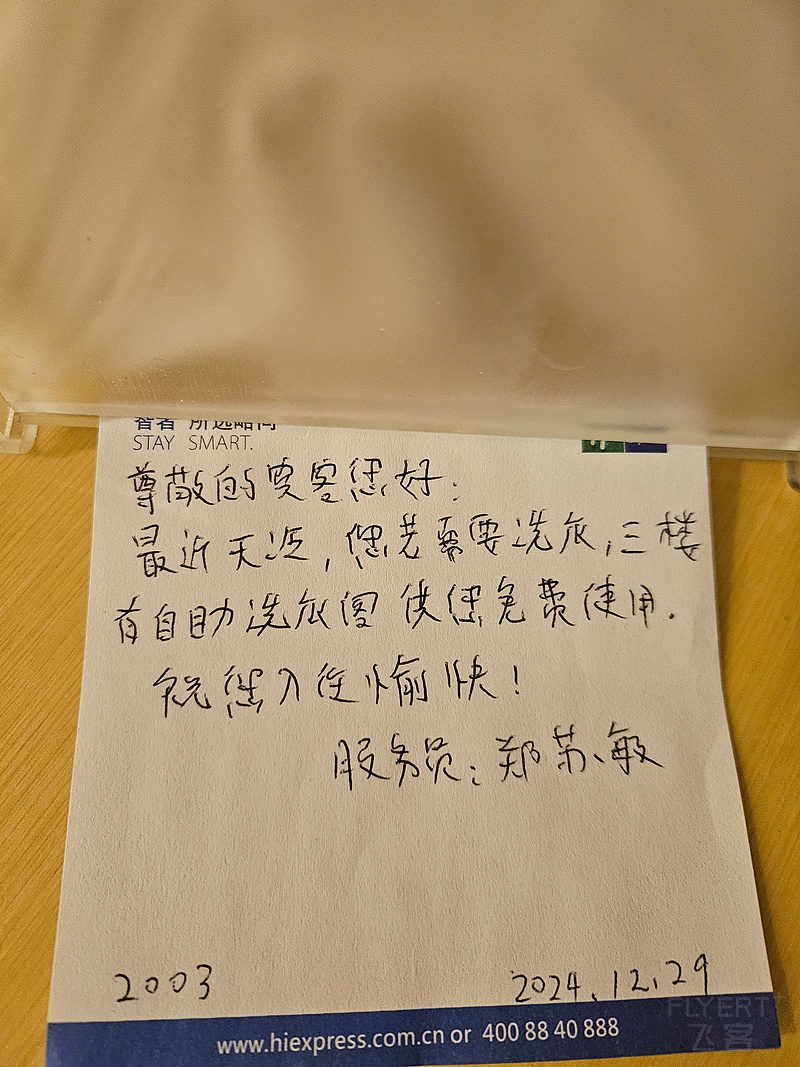 智者 所选略同
STAY SMART.
尊敬的贵客您好:
最近天冷,您若需要洗衣,三楼
有自助洗衣房供您免费使用.
祝您入住愉快!
服务员:郑苏敏
2003 2024.12.29
www.hiexpress.com.cn or 400 88 40 888
FLYERT
飞客